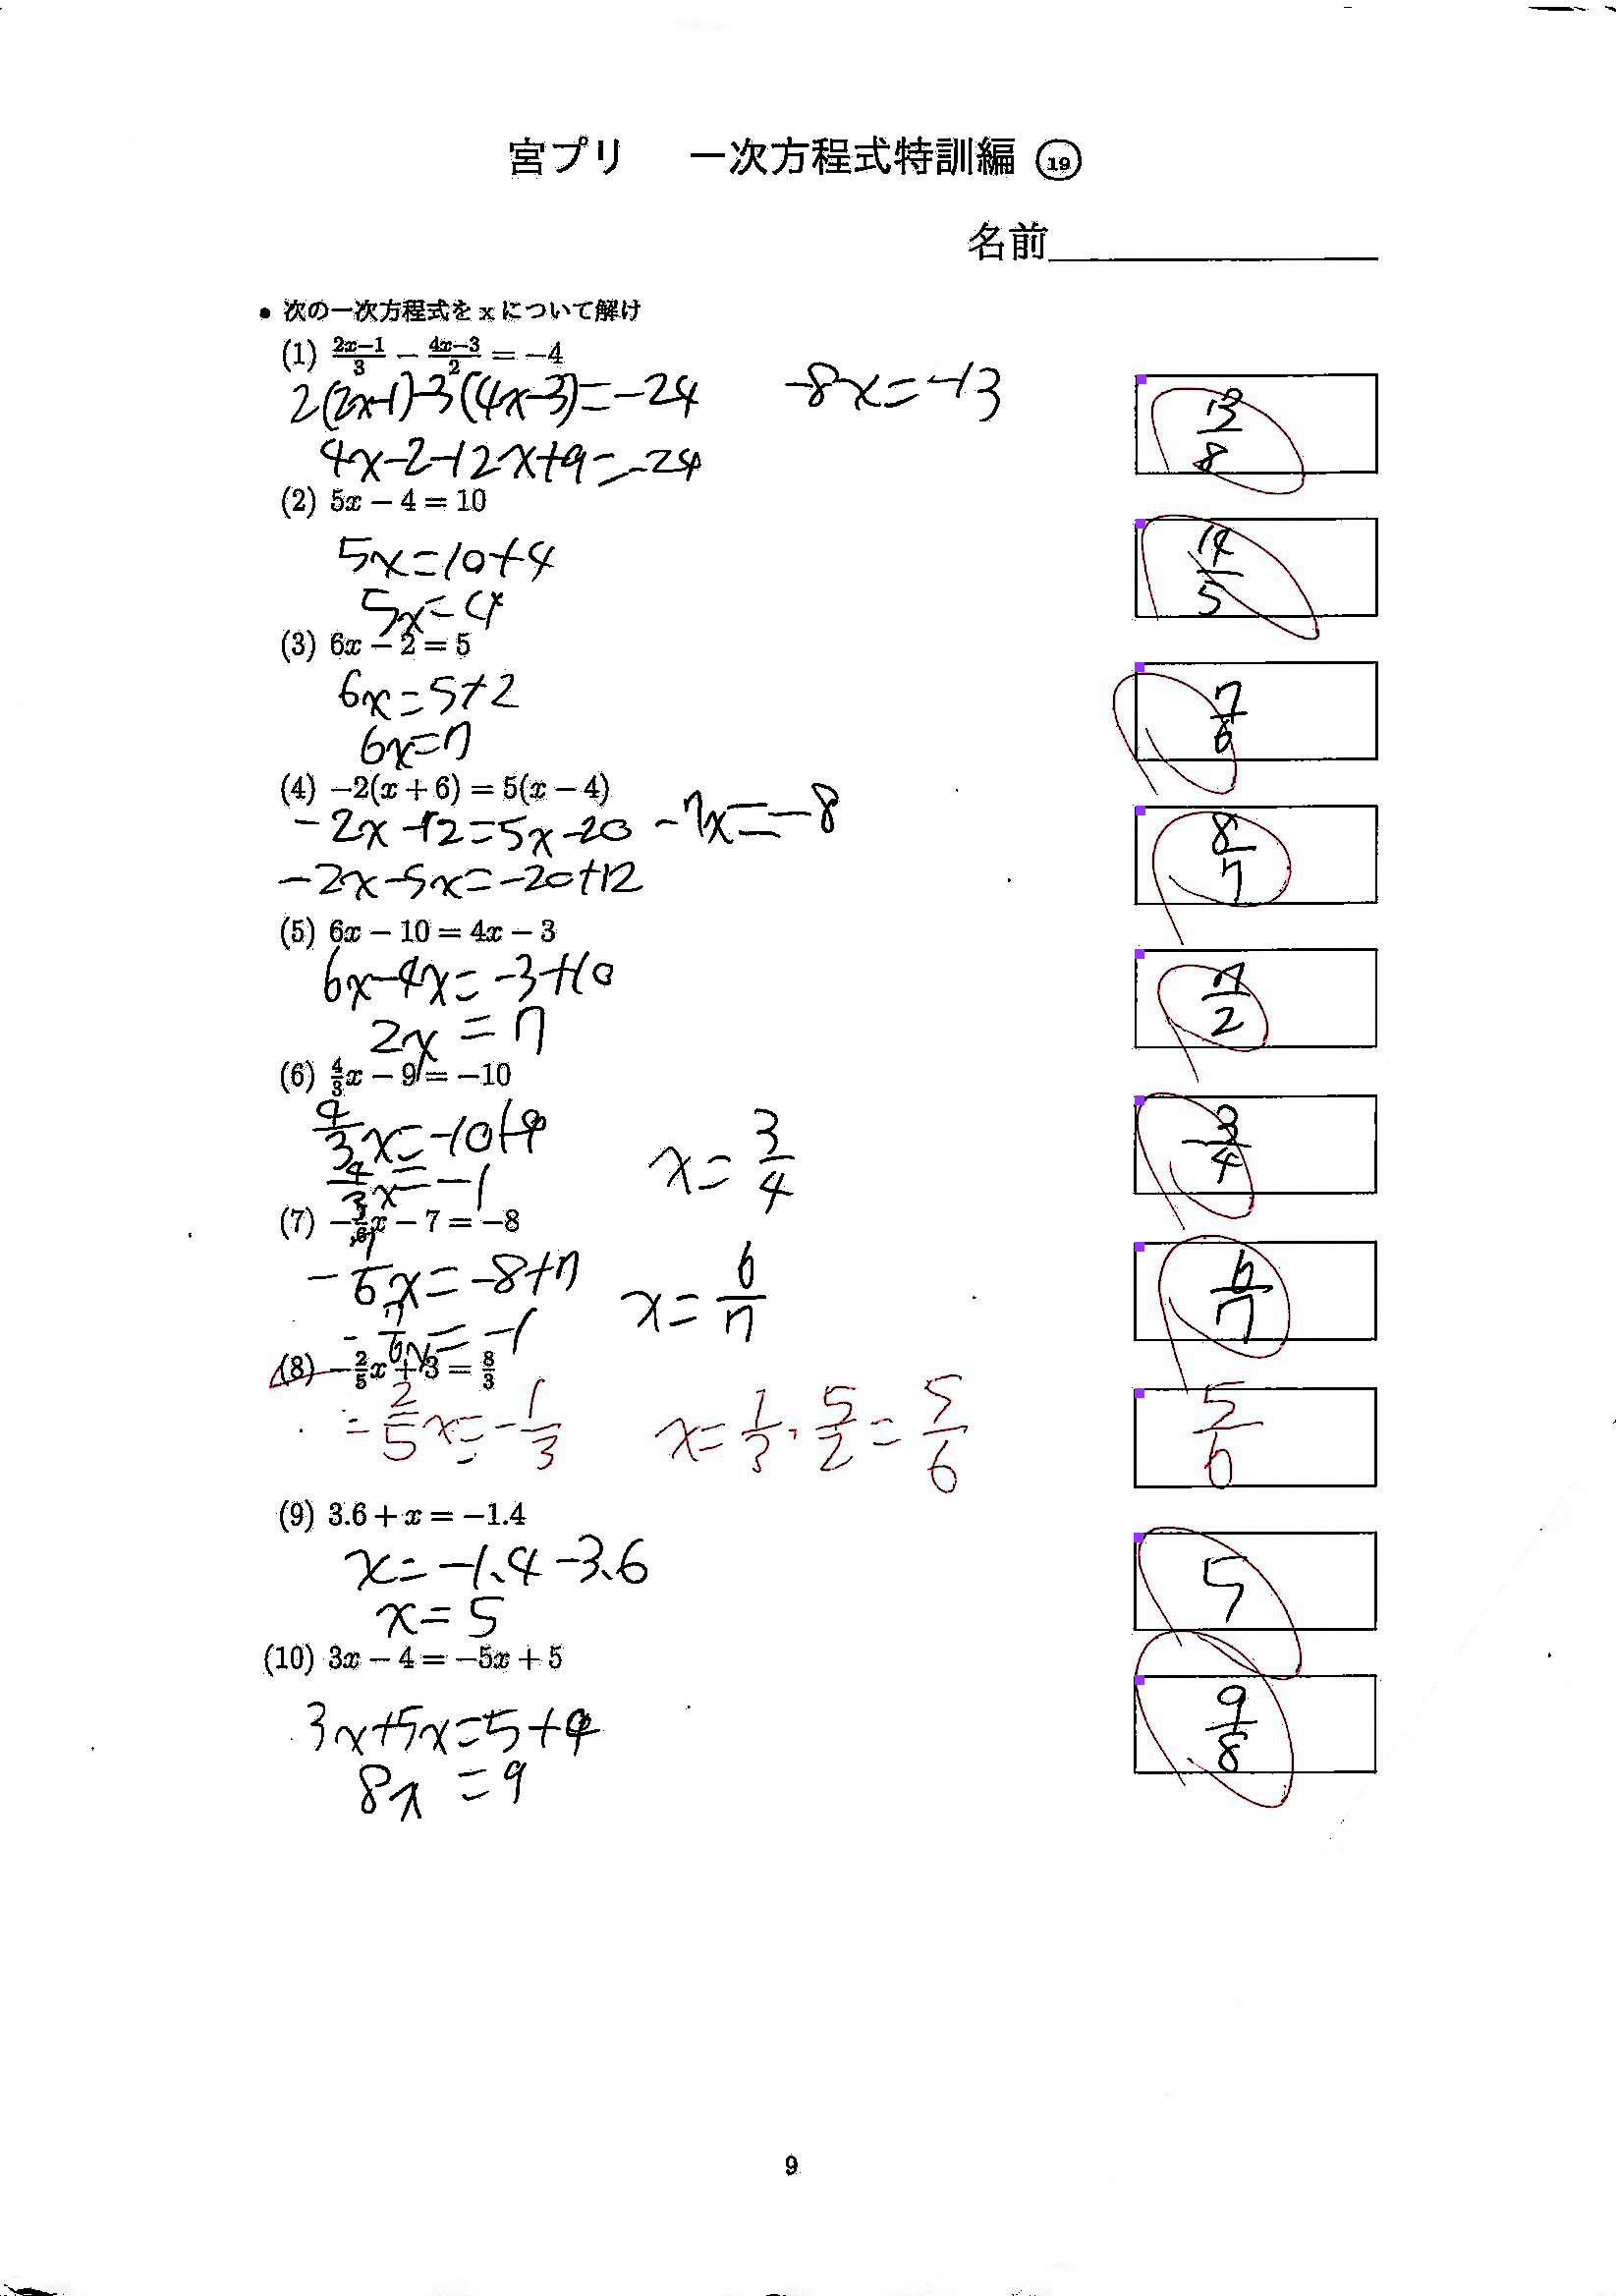 宮プリ 一次方程式特訓編 ⑲
名前
• 次の一次方程式を x について解け
(1) \frac{2x-1}{3} - \frac{4x-3}{2} = -4
2(2x-1)-3(4x-3)=-24 -8x=-13
4x-2-12x+9=-24
\frac{13}{8}
(2) 5x - 4 = 10
5x=10+4
5x=4
\frac{14}{5}
(3) 6x - 2 = 5
6x=5+2
6x=7
\frac{7}{6}
(4) -2(x + 6) = 5(x - 4)
-2x-12=5x-20 -7x=-8
-2x-5x=-20+12
\frac{8}{7}
(5) 6x - 10 = 4x - 3
6x-4x=-3+10
2x=7
\frac{7}{2}
(6) \frac{4}{3}x - 9 = -10
\frac{4}{3}x=-10+9
\frac{4}{3}x=-1 x=\frac{3}{4}
-\frac{3}{4}
(7) x - 7 = -8
x=-8+7 x=\frac{6}{7}
-\frac{7}{6}x=-1
\frac{6}{7}
(8) -\frac{2}{5}x + 3 = \frac{8}{3}
-\frac{2}{5}x=-\frac{1}{3} x=\frac{1}{3}·\frac{5}{2}=\frac{5}{6}
\frac{5}{6}
(9) 3.6 + x = -1.4
x=-1.4-3.6
x=5
5
(10) 3x - 4 = -5x + 5
3x+5x=5+4
8x=9
\frac{9}{8}
9